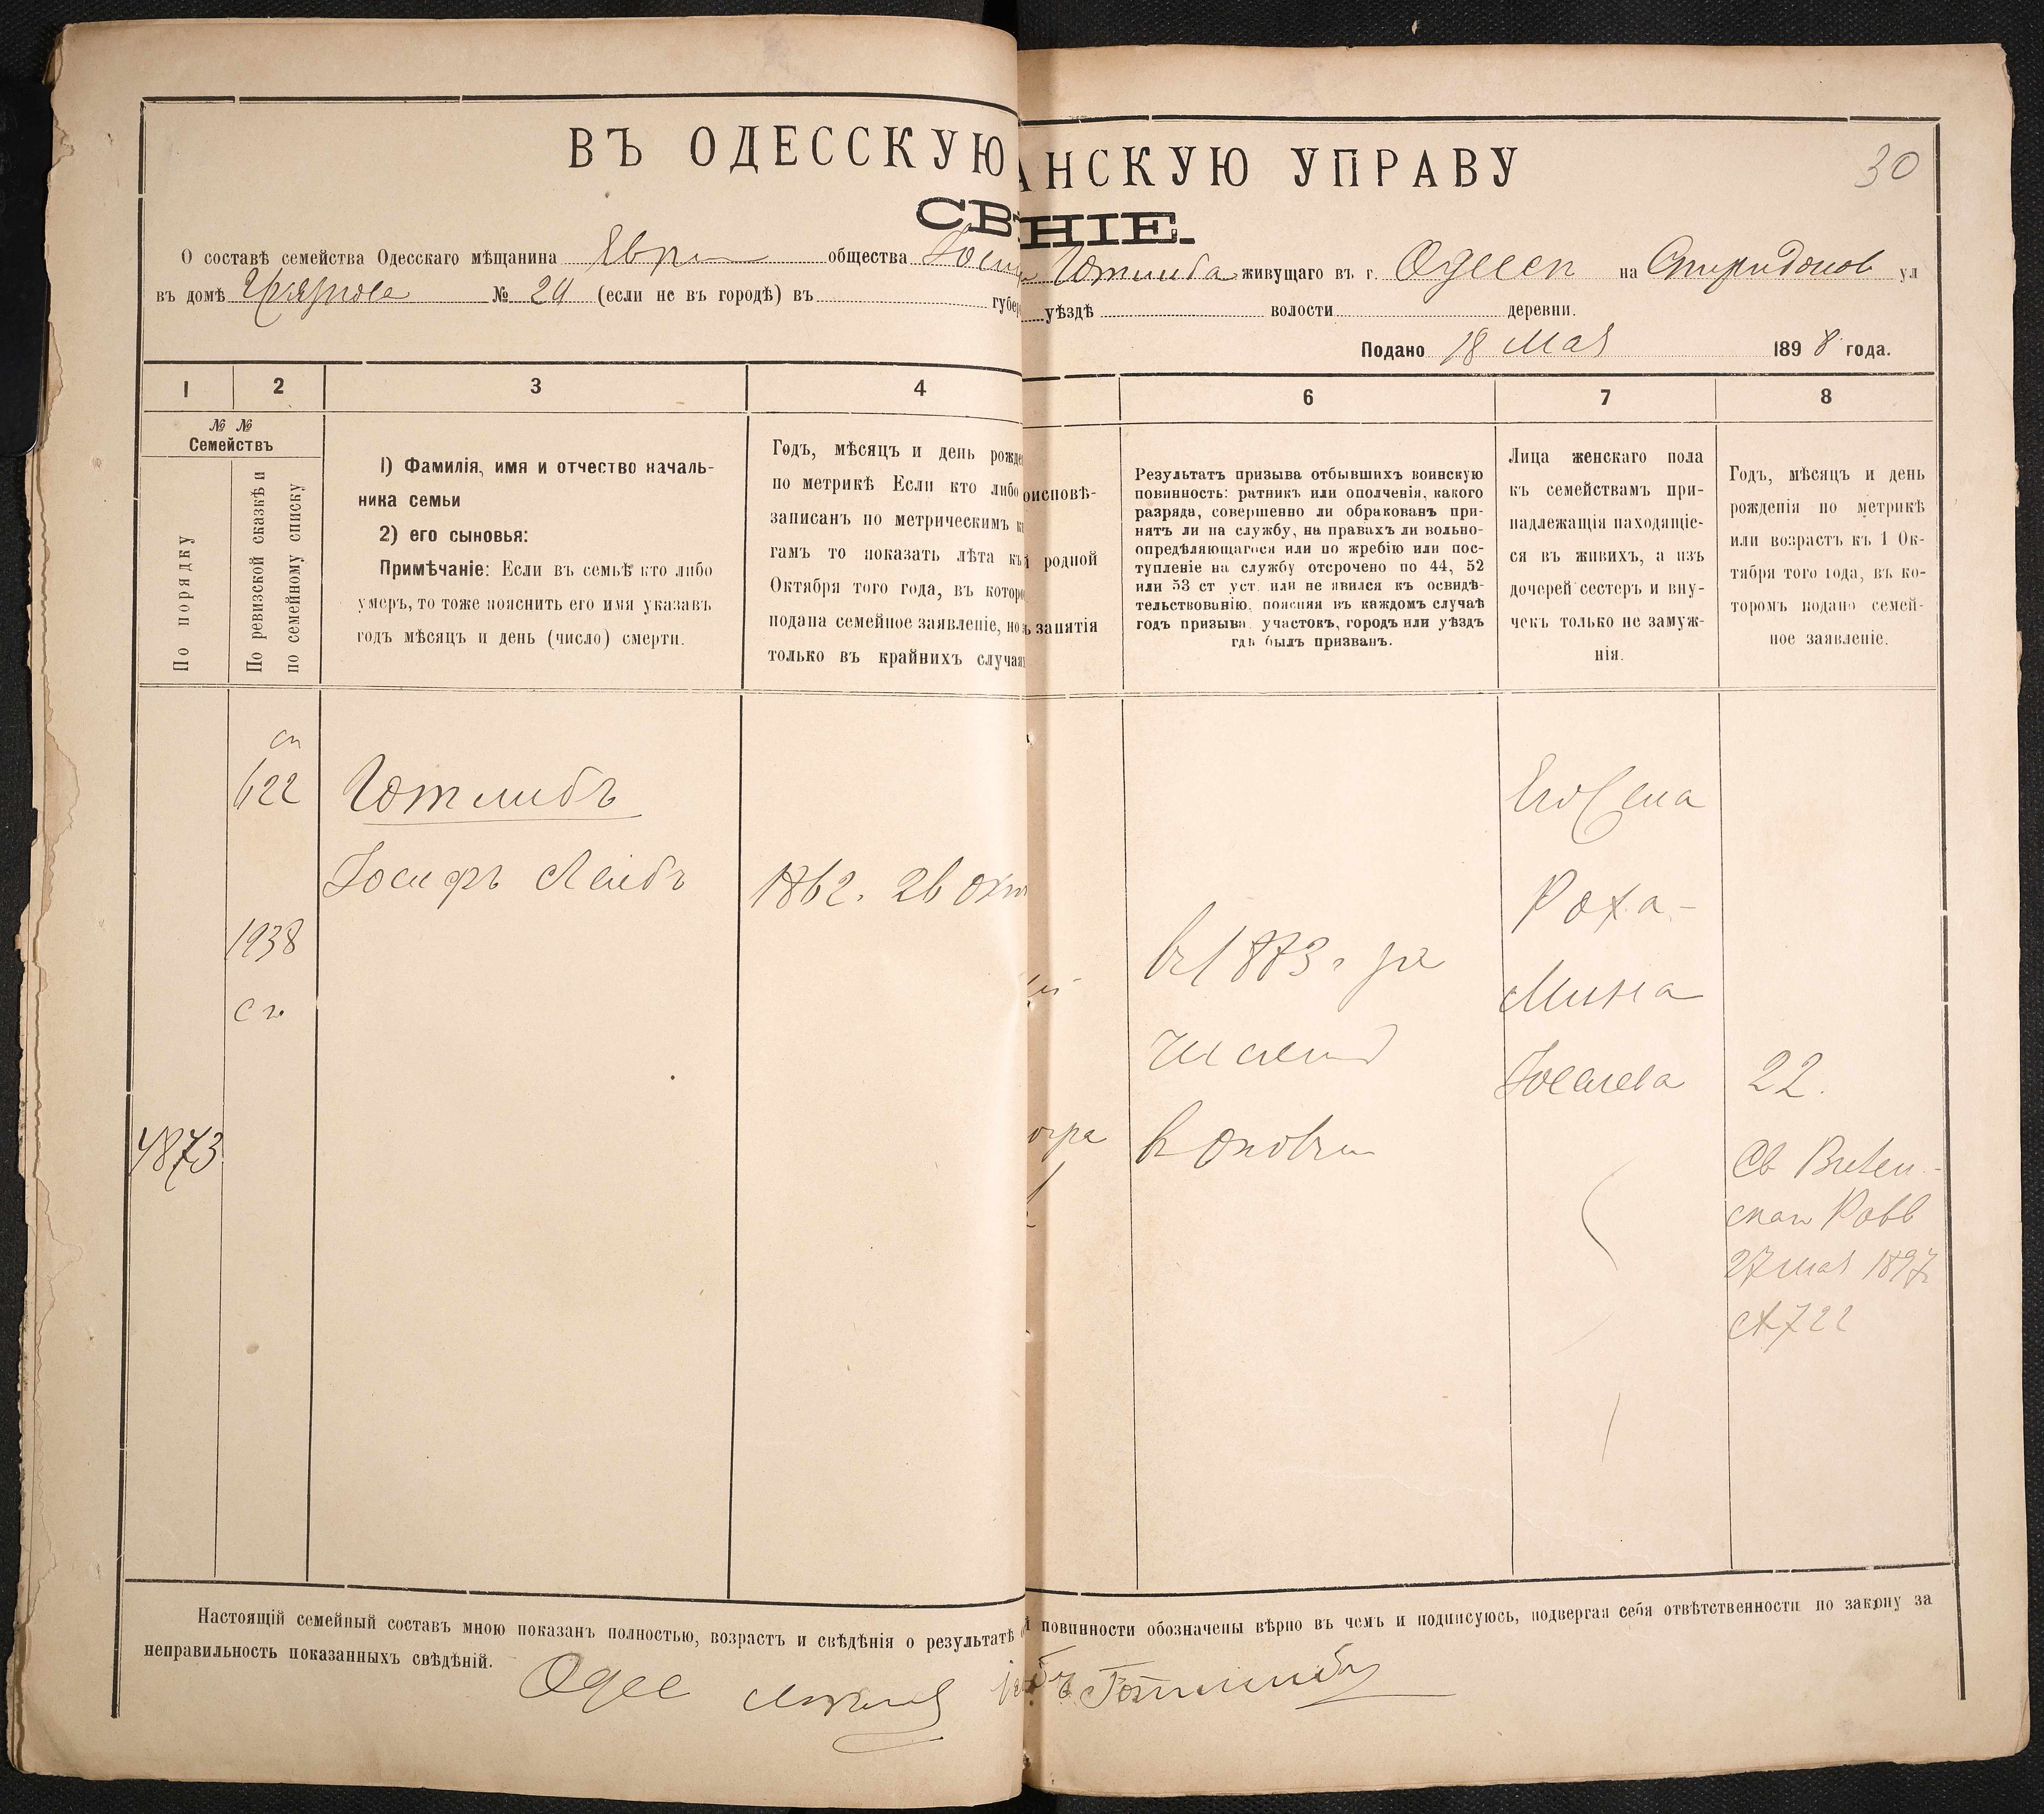 ВЪ ОДЕССКУЮ АНСКУЮ УПРАВУ
30
СВ НІЕ.
О составѣ семейства Одесскаго мѣщанина Евр общества Іосиф Готлиба живущаго въ г. Одесѣ на Спиридонов ул
въ домѣ № 24 (если не въ городѣ) въ губер уѣздѣ волости деревни.
Подано 18 Мая 1898 года.
1 2 3 4 6 7 8
№ №
Семействъ
По порядку
По ревизской сказкѣ и
по семейному списку
1) Фамилія, имя и отчество началь-
ника семьи
2) его сыновья:
Примѣчаніе: Если въ семьѣ кто либо
умеръ, то тоже пояснить его имя указавъ
годъ мѣсяцъ и день (число) смерти.
Годъ, мѣсяцъ и день рожде
по метрикѣ Если кто либо
записанъ по метрическимъ к
гамъ то показать лѣта къ
Октября того года, въ которо
подана семейное заявленіе, но
только въ крайнихъ случая
оисповѣ-
родной
занятія
Результатъ призыва отбывшихъ воинскую
повинность: ратникъ или ополченія, какого
разряда, совершенно ли обракованъ при-
нятъ ли на службу, на правахъ ли вольно-
опредѣляющагося или по жребію или пос-
тупленіе на службу отсрочено по 44, 52
или 53 ст уст. или не явился къ освидѣ-
тельствованію, поясняя въ каждомъ случаѣ
годъ призыва, участокъ, городъ или уѣздъ
гдѣ былъ призванъ.
Лица женскаго пола
къ семействамъ при-
надлежащія находящіе-
ся въ живихъ, а изъ
дочерей сестеръ и вну-
чекъ только не замуж-
нія.
Годъ, мѣсяцъ и день
рожденія по метрикѣ
или возрастъ къ 1 Ок-
тября того года, въ ко-
торомъ подано семей-
ное заявленіе.
сп
622
Готлибъ
Іосифъ Лейбъ
1862. 26 окт
1938
сп.
4873
въ 1883 г за
числен
в ополч
Его жена
Роха-
Мина
Іоселева
22.
Св Вилен-
скаго Равв
27 мая 1897
№ 722
Настоящій семейный составъ мною показанъ полностью, возрастъ и свѣдѣнія о результатѣ повинности обозначены вѣрно въ чемъ и подписуюсь, подвергая себя отвѣтственности по закону за
неправильность показанныхъ свѣдѣній.
Одес Готлибъ